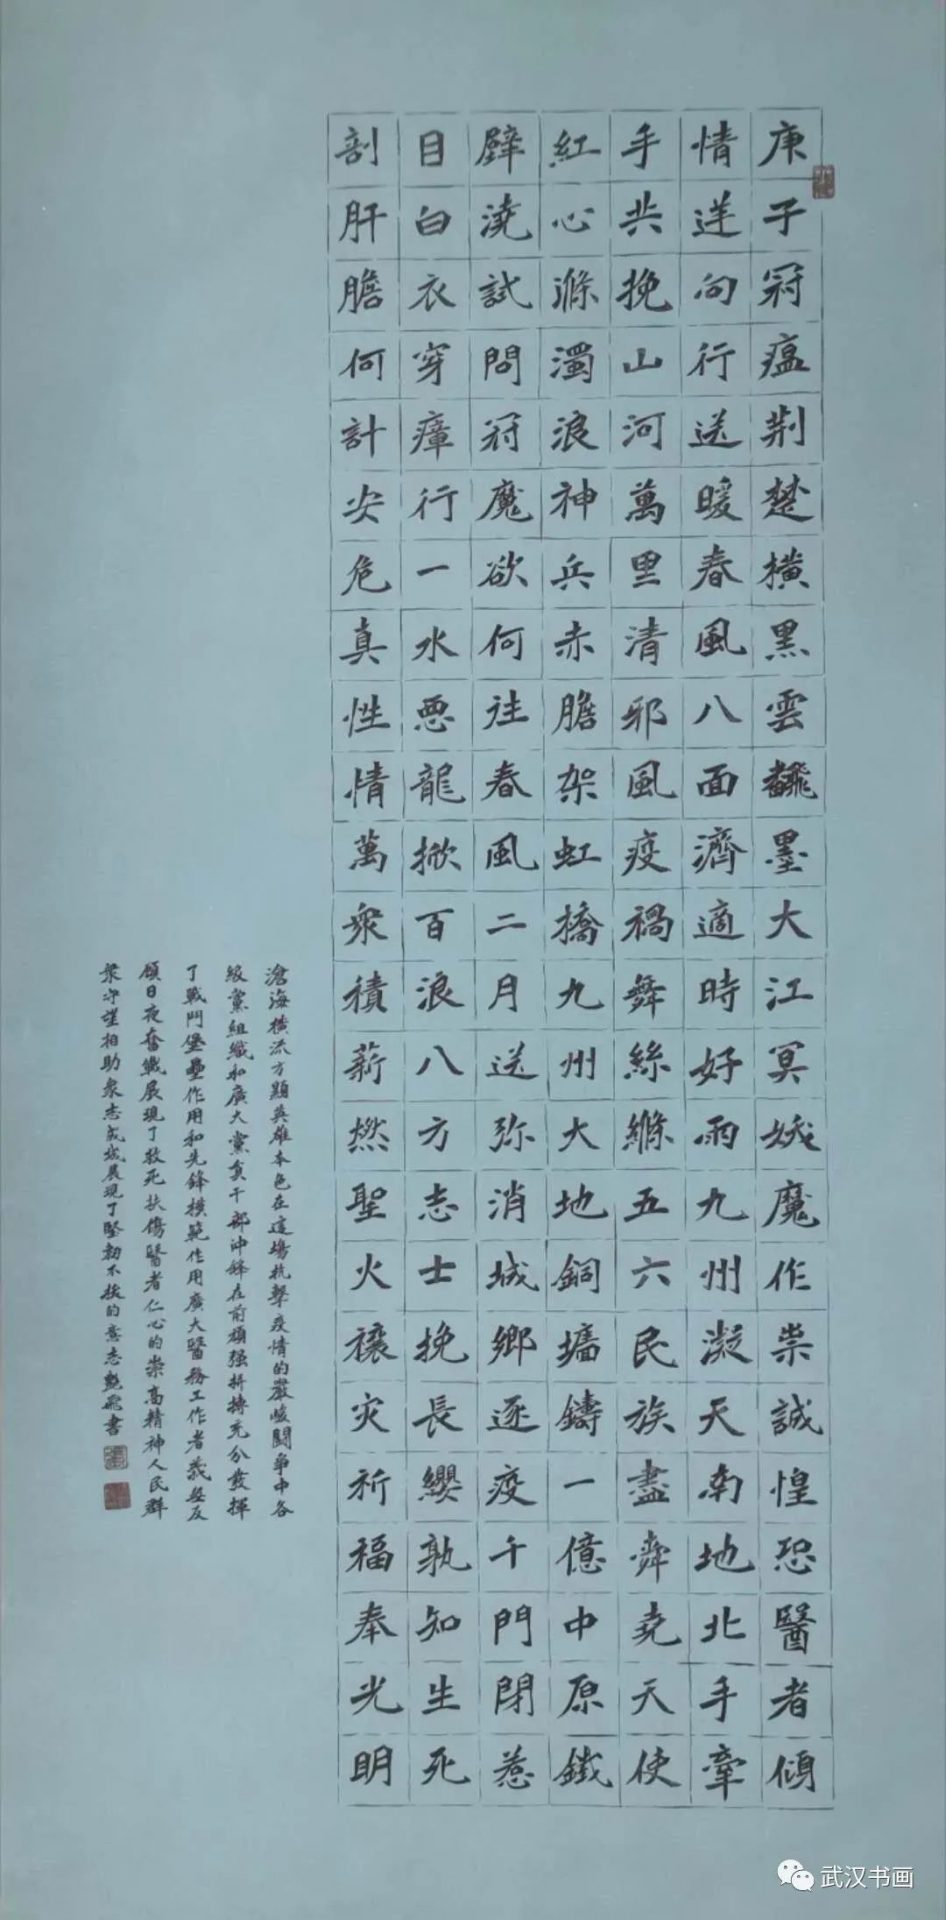 庚子冠瘟荆楚橫黑雲飜墨大江冥妖魔作祟誠惶恐醫者傾
情送向行送暖春風八面濟適時好雨九州凝天南地北手牽
手共挽山河萬里清邪風疫禍舞絲縧五六民族盡舜堯天使
紅心滌濁浪神兵赤膽架虹橋九州大地銅墻鑄一億中原鐵
壁澆試問冠魔欲何往春風二月送弥消城鄉逐疫千門閉惹
目白衣穿瘴行一水惡龍掀百浪八方志士挽長纓孰知生死
剖肝膽何計安危真性情萬衆積薪燃聖火禳灾祈福奉光明
滄海橫流方顯英雄本色在這場抗擊疫情的嚴峻鬪爭中各
級黨組織和廣大黨員干部沖鋒在前頑强拼搏充分發揮
了戰鬥堡壘作用和先鋒模範作用廣大醫務工作者義無反
顧日夜奮戰展現了救死扶傷醫者仁心的崇高精神人民群
衆守望相助衆志成城展現了堅韌不拔的意志 飛書
武汉书画